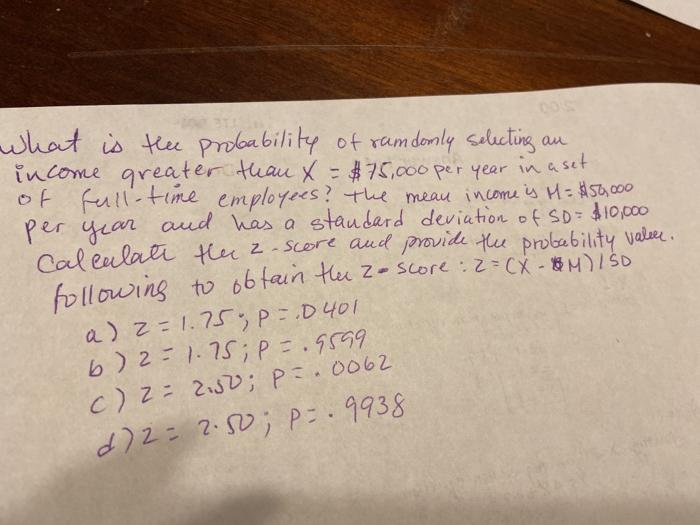 What is the probability of ramdomly selecting an
income greater than X = $75,000 per year in a set
of full-time employees? the mean income is M = $50,000
per year and has a standard deviation of SD = $10,000
Calculate the z-score and provide the probability value.
following to obtain the z-score : z = (X - M) / SD
a) z = 1.75; p = .0401
b) z = 1.75; p = .9599
c) z = 2.50; p = .0062
d) z = 2.50; p = .9938